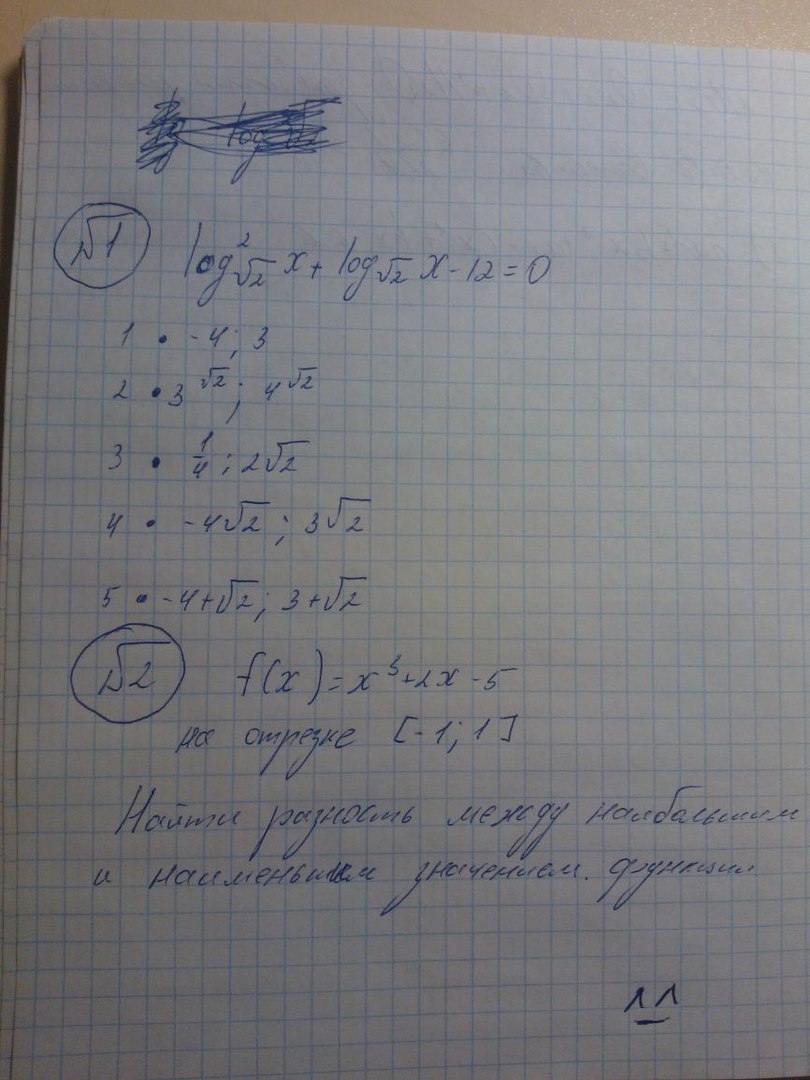 №1 log²_√2 x + log_√2 x - 12 = 0
1 • -4; 3
2 • 3^√2; 4^√2
3 • 1/4; 2√2
4 • -4√2; 3√2
5 • -4+√2; 3+√2
№2 f(x)=x³+2x-5
на отрезке [-1; 1]
Найти разность между наибольшим
и наименьшим значением. функции
^_^